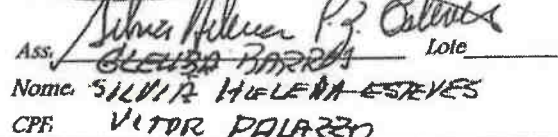 Silvia Helena P. Z.
Ass. GLEUZA BARROS Lote
Nome. SILVIA HELENA ESTEVES
CPF. VITOR PALAZZO